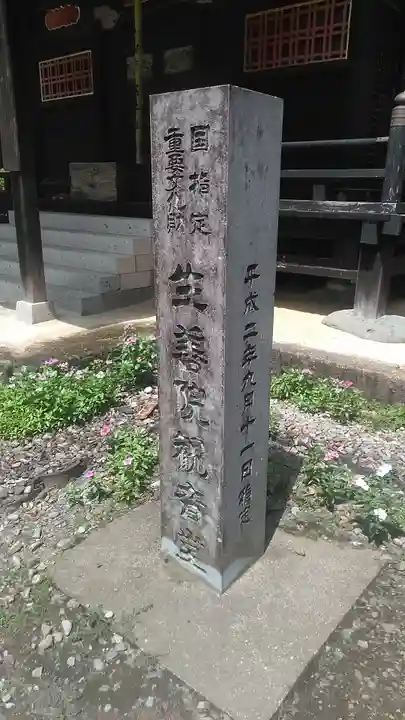 国指定
重要文化財
生善院観音堂
平成二年九月十一日指定